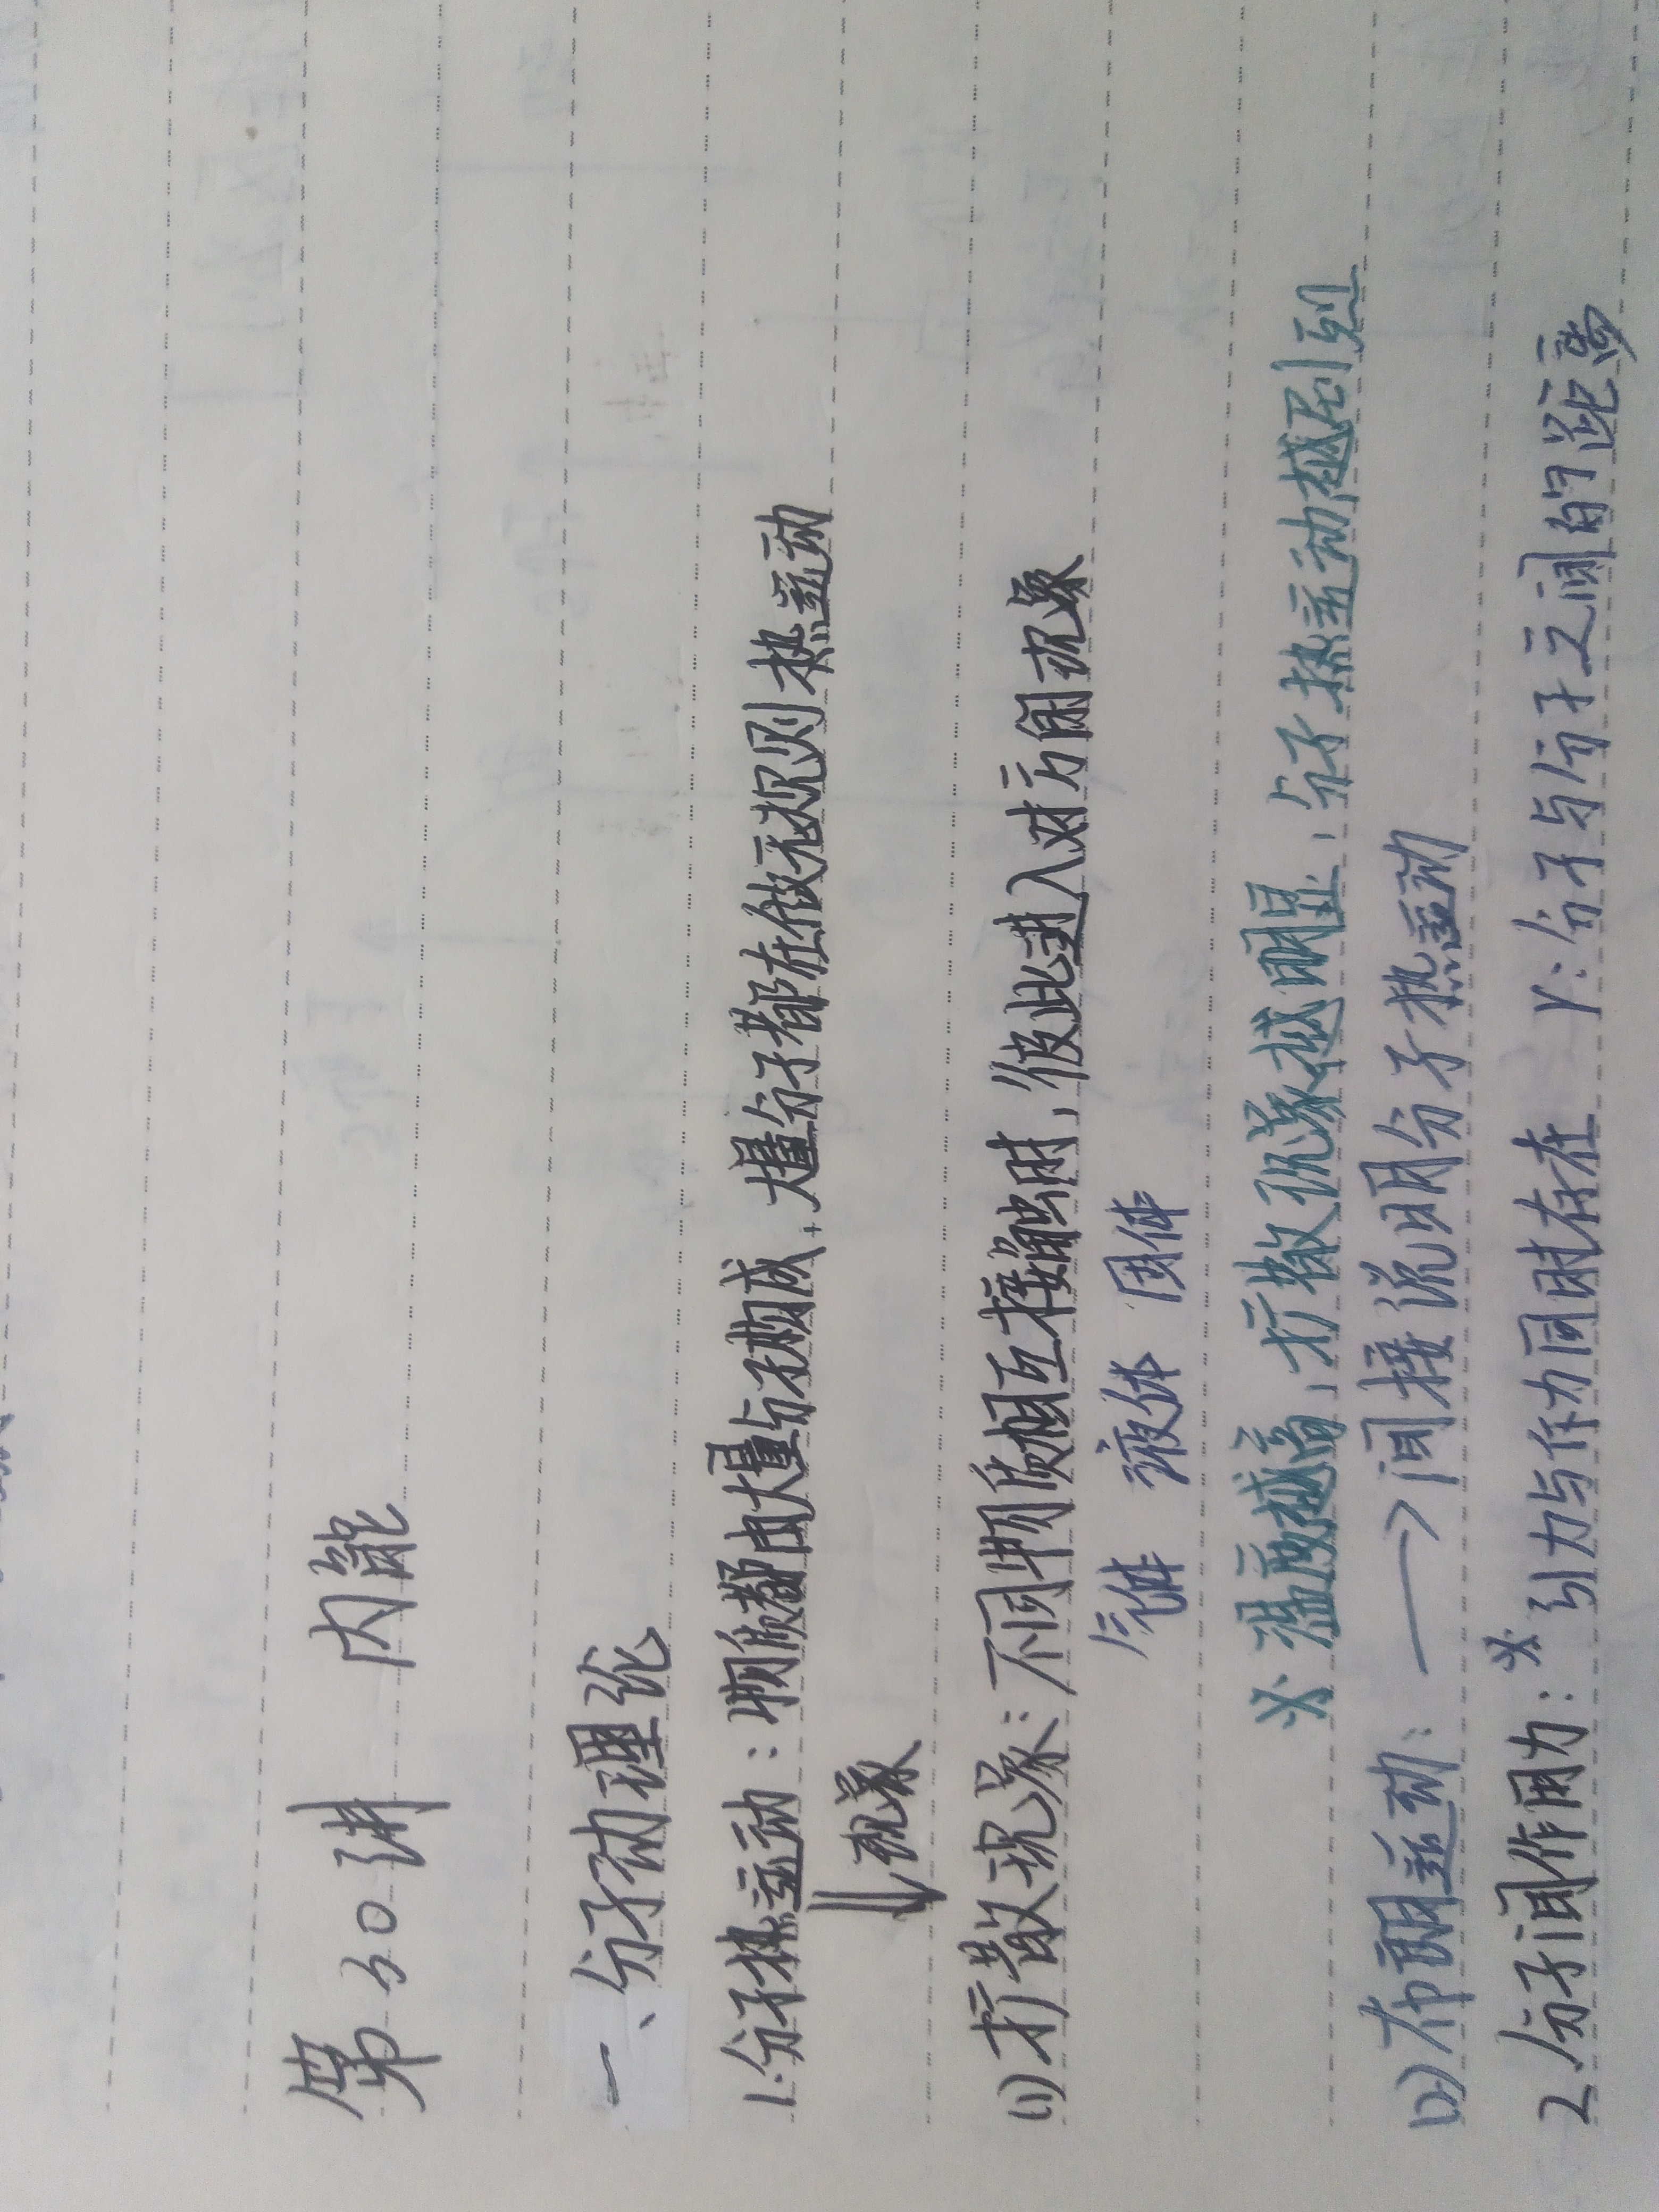 第30讲 内能
一、分子动理论
1.分子热运动：物质都由大量分子构成，大量分子都在做无规则热运动
现象
(1)扩散现象：不同物质相互接触时，彼此进入对方的现象
气体 液体 固体
※温度越高，扩散现象越明显，分子热运动越剧烈
(2)布朗运动：→间接说明分子热运动
2.分子间作用力：※引力与斥力同时存在 r：分子与分子之间的距离